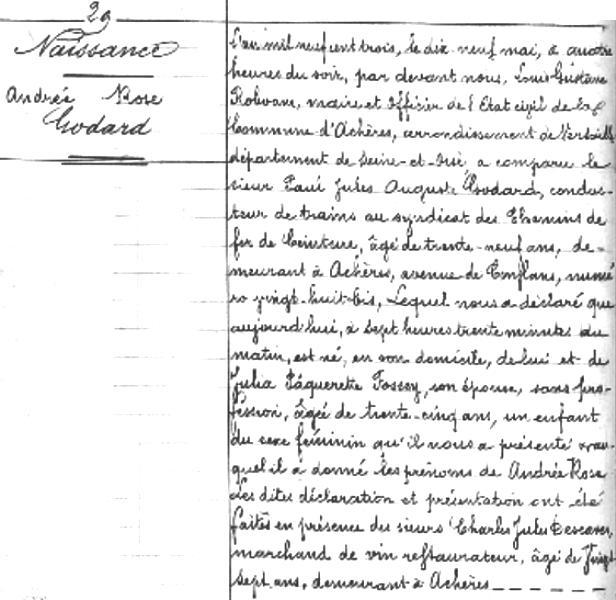 29
Naissance
Andrée Rose
Godard
L'an mil neuf cent trois, le dix neuf mai, à quatre
heures du soir, par devant nous, Louis Gustave
maire et officier de l'Etat civil de la
Commune d'Achères, arrondissement de Versailles
département de Seine-et-Oise a comparu le
sieur Paul Jules Auguste Godard, conduc-
teur de trains au syndicat des Chemins de
fer de Ceinture, âgé de trente-neuf ans, de-
meurant à Achères, avenue de Conflans, numé
ro vingt-huit bis, Lequel nous a déclaré que
aujourd'hui, à sept heures trente minutes du
matin, est né, en son domicile, de lui et de
Julia Pâquerette Fossey, son épouse, sans pro-
fession, âgée de trente-cinq ans, un enfant
du sexe féminin qu'il nous a présenté et au-
quel il a donné les prénoms de Andrée Rose
Les dites déclaration et présentation ont été
faites en présence des sieurs Charles Jules
marchand de vin restaurateur, âgé de vingt
sept ans, demeurant à Achères